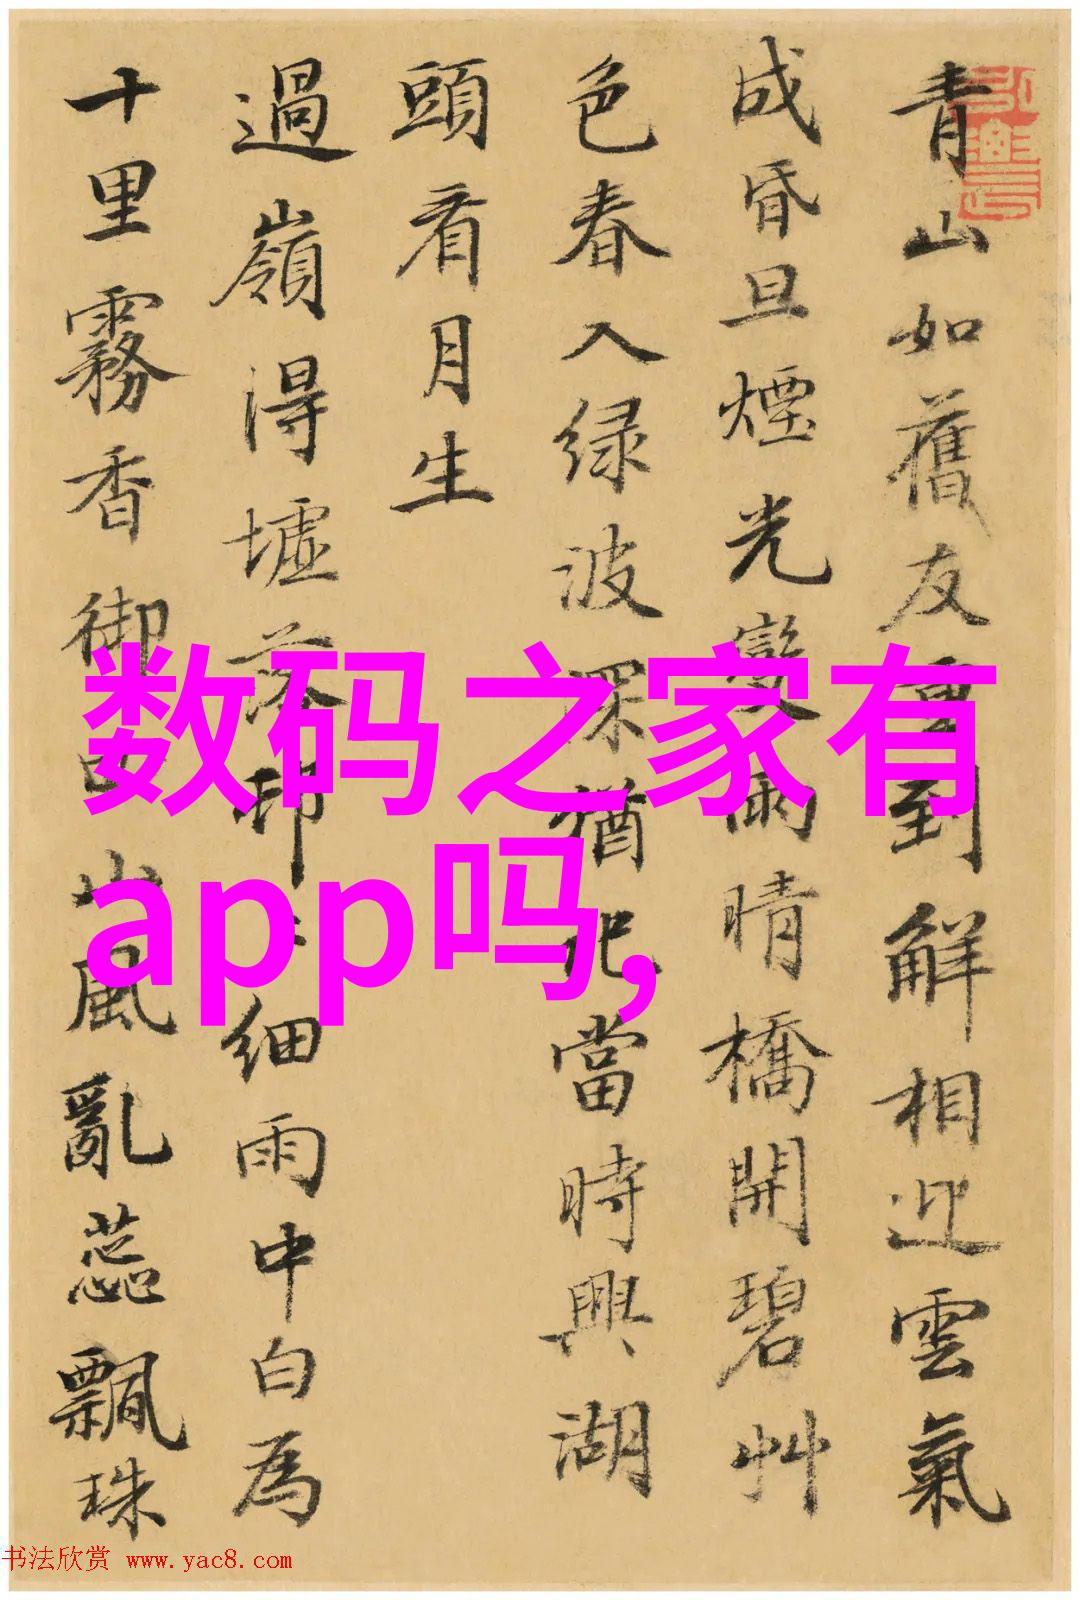 青山如舊友重到解相迎雲氣
成昏旦煙光變雨晴橋開碧艸
色春入绿波深猶記當時興湖
頭看月生
過嶺得墟落邨細雨中白為
十里霧香御山風亂蕊飄珠
数码之家有
app吗,
书法欣赏 www.yac8.com